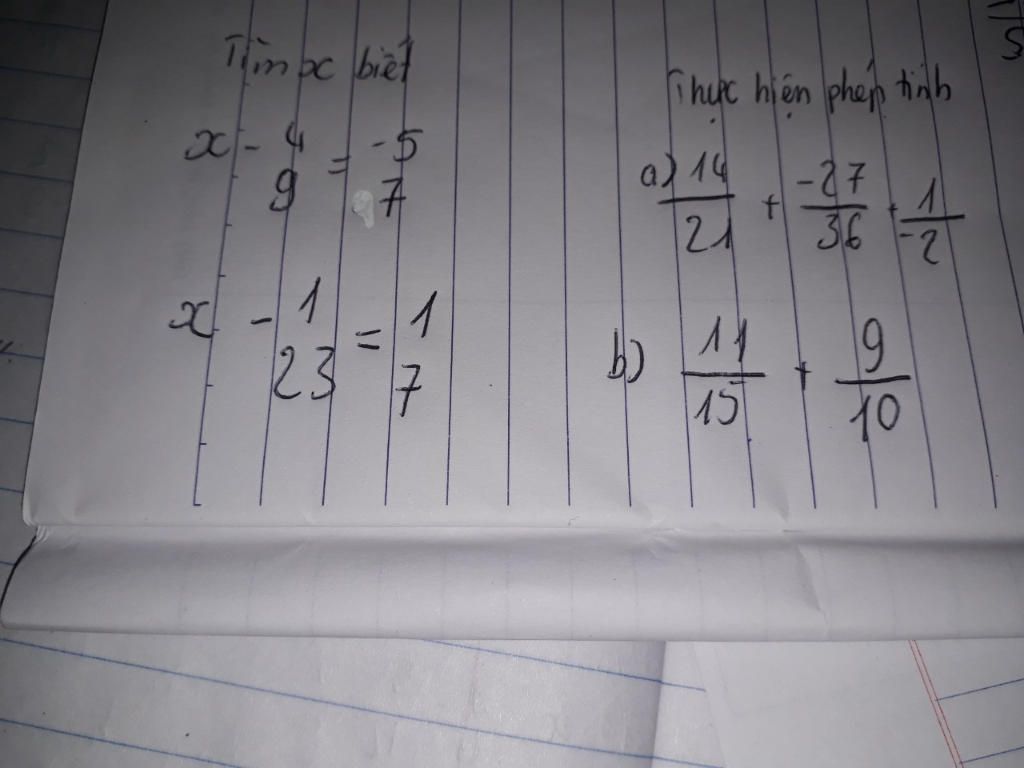 Tìm x biết
x - 4/9 = -5/7
x - 1/23 = 1/7
Thực hiện phép tính
a) 14/21 + -27/36 + 1/-2
b) 11/15 + 9/10